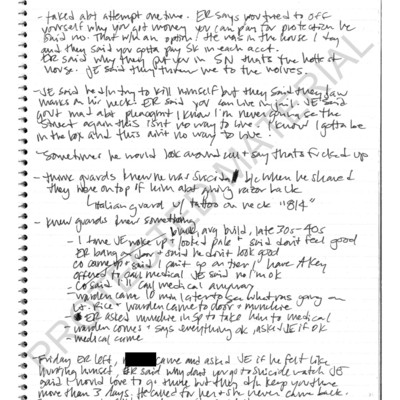 - talked abt attempt one time. ER says you tried to off
yourself why you alt move you can pay for protection he
said no. That isn't an option. He was in the house 1 day
and they said you gotta pay 5k in each acct.
ER said why they put you in SN that's the hole of
house. JE said they threw me to the wolves.
- JE said he didn't try to kill himself but they said they saw
marks on his neck. ER said you can live in jail. JE said
govt mad abt pleapoint I know I'm never gonna see the
street again this isn't no way to live. I know I gotta be
in the box and this ain't no way to live.
- Sometimes he would look around cell + say thats fucked up
- think guards knew he was suicidal b/c when he shaved
they were on top of him abt giving razor back
Italian guard w/ tattoo on neck "814"
- knew guards knew something
black, avg build, late 30s-40s
- 1 time JE woke up + looked pale + said don't feel good
ER bang on door + said he don't look good
co came up + said I ain't go on tier, I have A key
offered to call medical JE said no I'm ok
- Co said I'll call medical anyway
- warden came 10 min later to see what was going on
- Lt. Rice + warden came to door +
- ER asked in Sp to take him to medical
- warden comes + says everything ok asked JE if ok
- medical came
Friday ER left, came and asked JE if he felt like
hurting himself, ER said why don't you go to suicide watch JE
said I would love to go there but they d/n keep you there
more than 3 days. He called for her + she never came back.
PROTECTED MATERIAL